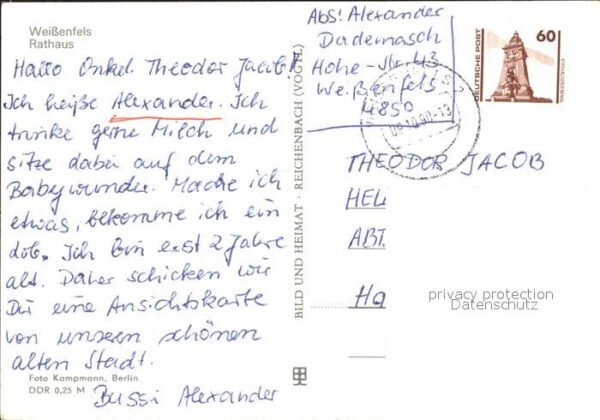 Weißenfels
Rathaus
Hallo Onkel Theodor Jacob!
Ich heiße Alexander. Ich
trinke gerne Milch und
sitze dabei auf dem
Babywunder. Mache ich
etwas, bekomme ich ein
Lob. Ich bin erst 2 Jahre
alt. Daher schicken wir
Dir eine Ansichtskarte
von unseren schönen
alten Stadt.
Bussi Alexander
Foto Kampmann, Berlin
DDR 0,25 M
BILD UND HEIMAT · REICHENBACH (VOGTL)
Abs! Alexander
Dademasch
Hohe-Str. 43
Weißenfels
4850
DEUTSCHE POST
60
THEODOR JACOB
HEL
ABT.
Ha
privacy protection
Datenschutz